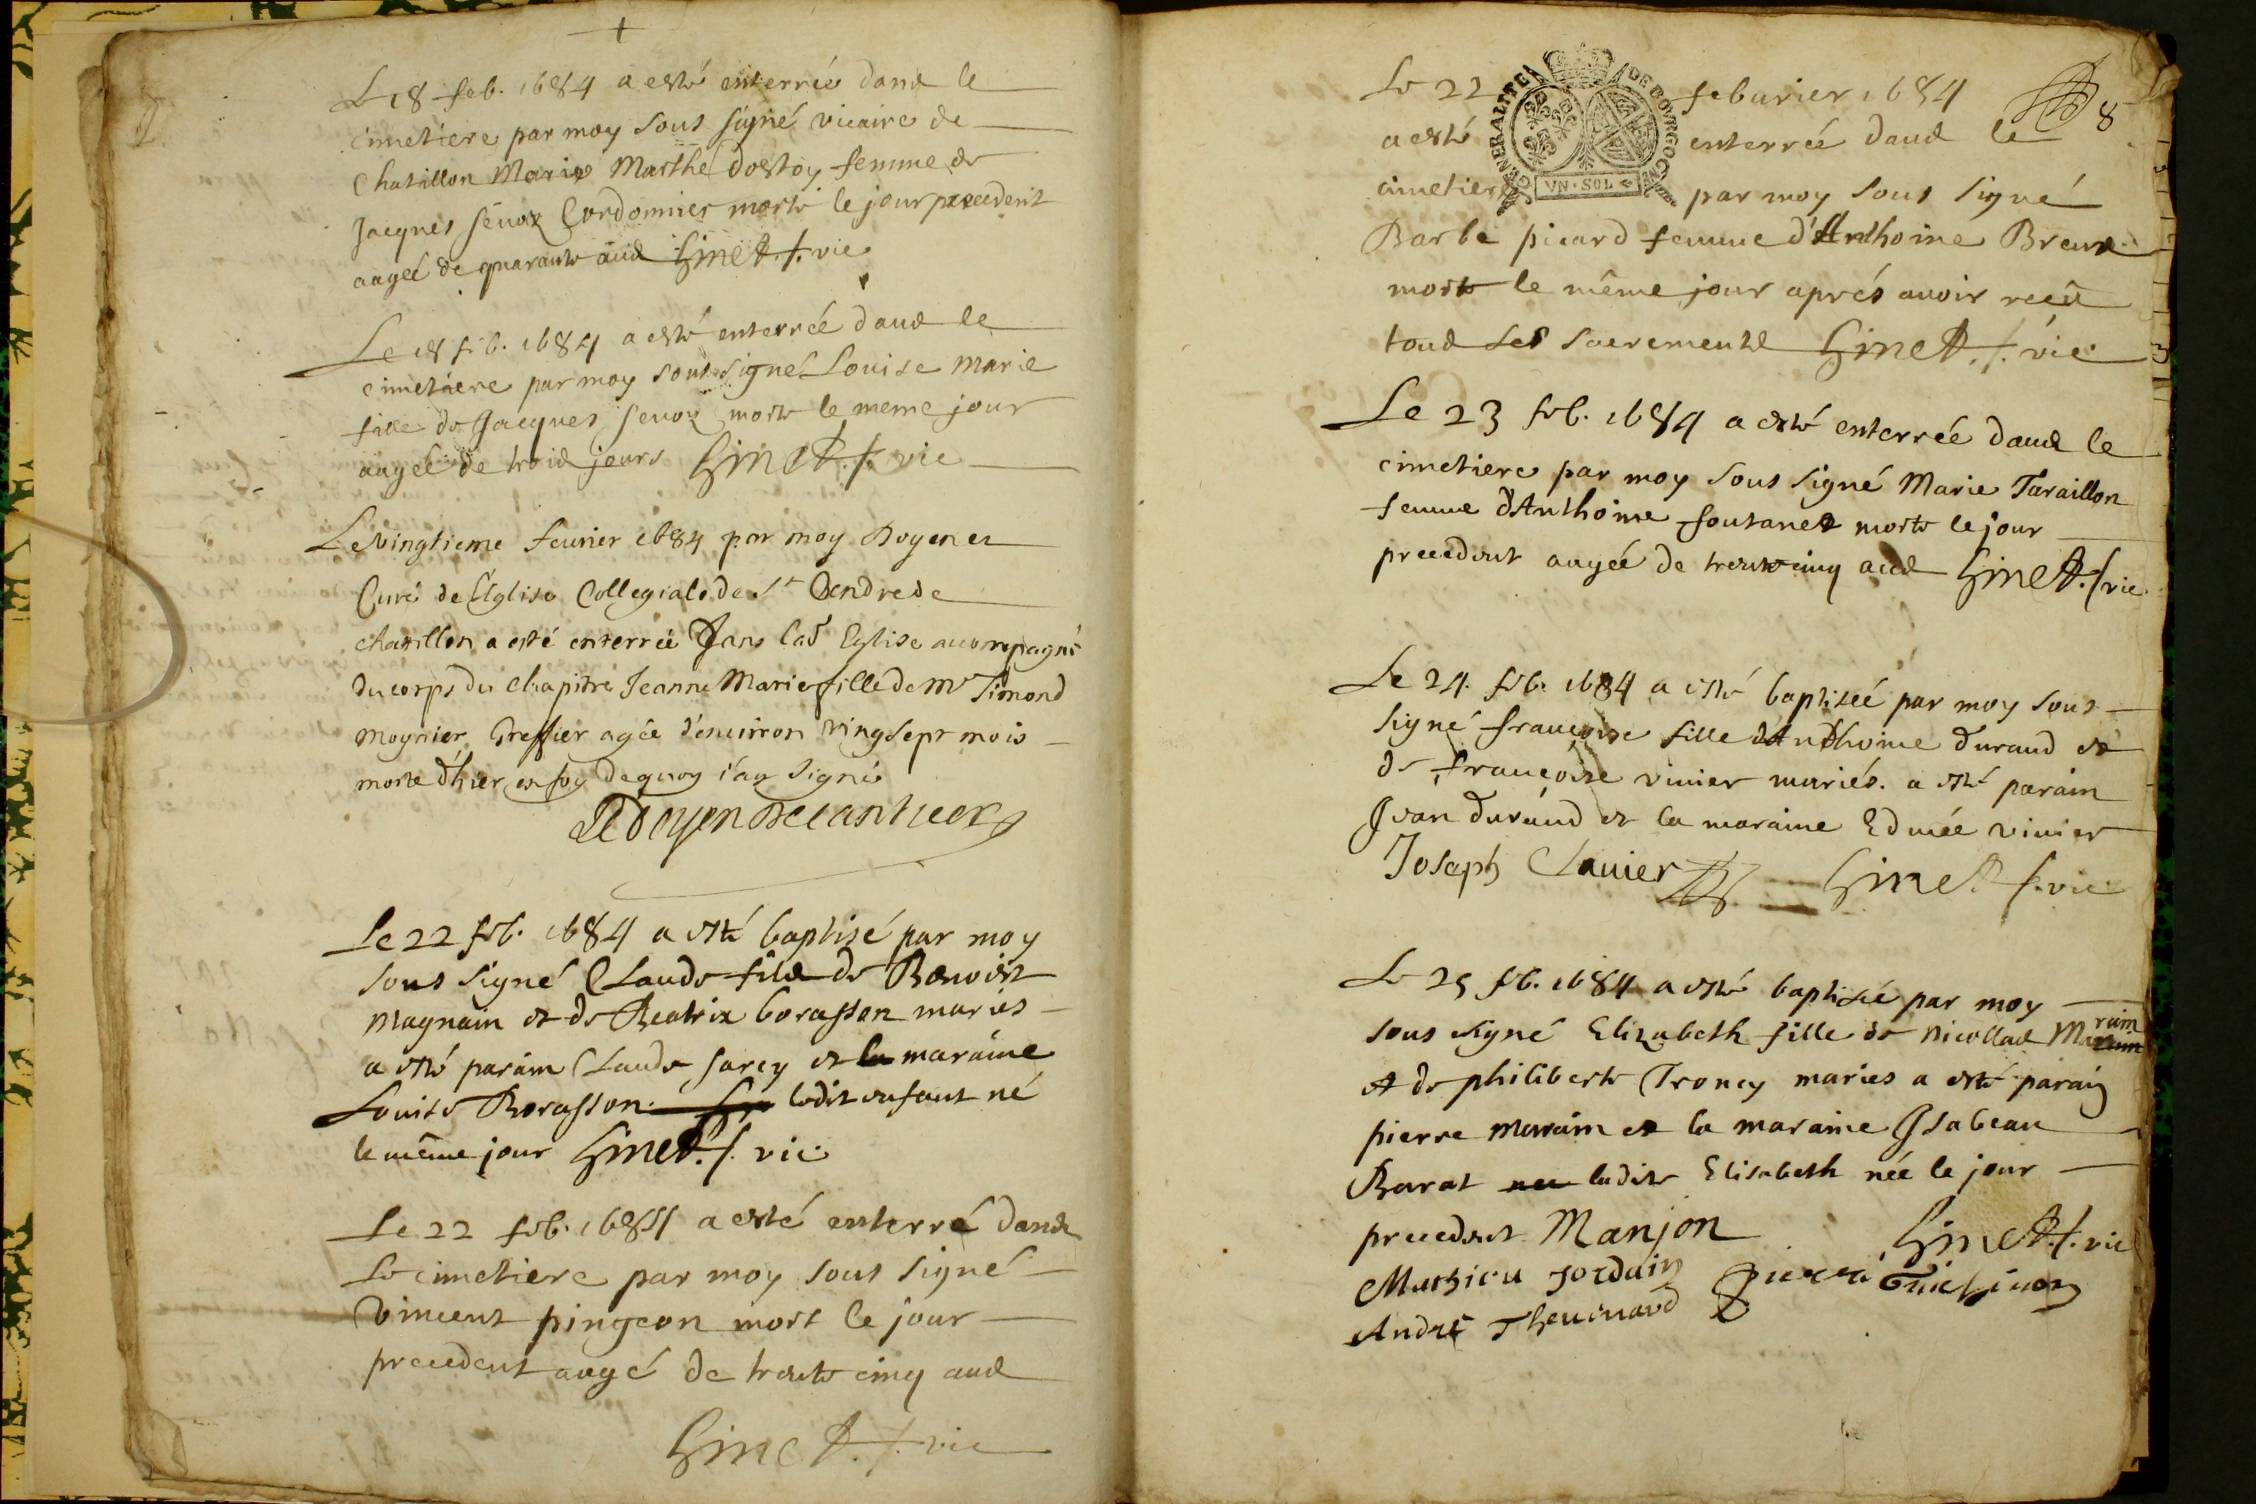 +
Le 18 feb. 1684 a esté enterrée dans le
cimetiere par moy sous signé vicaire de
Chatillon Marie Marthe dostoy femme de
Jacques sevoz Cordonnier morte le jour precedent
aagée de quarante ans Ginet .f. vic
Le 18 feb. 1684 a esté enterrée dans le
cimetiere par moy sous signé Louise Marie
fille de Jacques sevoz morte le meme jour
aagée de trois jours Ginet .f. vic
Le vingtieme fevrier 1684 par moy Doyen et
Curé de l'Eglise Collegiale de St Andre de
chatillon a esté enterrée dans lad Eglise accompagné
du corps du chapitre Jeanne Marie fille de Mr Simond
moynier Greffier agée d'environ vingsept mois
morte d'hier en foy dequoy i'ay signé
Le doyen
Le 22 feb. 1684 a esté baptisé par moy
sous signé Claude fils de Benoist
Magnain et de Beatrix borasson mariés
a esté parain Claude sarcy et la maraine
Louise Borasson. ledit enfant né
le même jour Ginet .f. vic
Le 22 feb. 1684 a esté enterré dans
le cimetiere par moy sous signé
Vincent pingeon mort le jour
precedent aagé de trente cinq ans
Ginet .f. vic
Le 22 febvrier 1684
8
a esté enterrée dans le
cimetiere par moy sous signé
GENERALITE DE BOVRGOGNE
VN·SOL
Barbe picard femme d'Anthoine Breux
morte le même jour aprés avoir reçû
tous les sacrements Ginet .f. vic
Le 23 feb. 1684 a esté enterrée dans le
cimetiere par moy sous signé Marie Taraillon
femme d'Anthoine fontanet morte le jour
precedent aagée de trente cinq ans Ginet .f vic.
Le 24. feb. 1684 a esté baptisée par moy sous
signé françoise fille d'Anthoine durand et
de françoise vivier mariés. a esté parain
Jean durand et la maraine Edmée vivier
Joseph Clavier Ginet f. vic
Le 25 feb. 1684 a esté baptisée par moy
sous signé Elizabeth fille de Nicollas Marain
et de philiberte Troncy maries a esté parain
pierre marain et la maraine Isabeau
Barat ladite Elisabeth née le jour
precedent Manjon Ginet .f. vic
Mathieu Jordain pierre Guichenon
André Thevenard